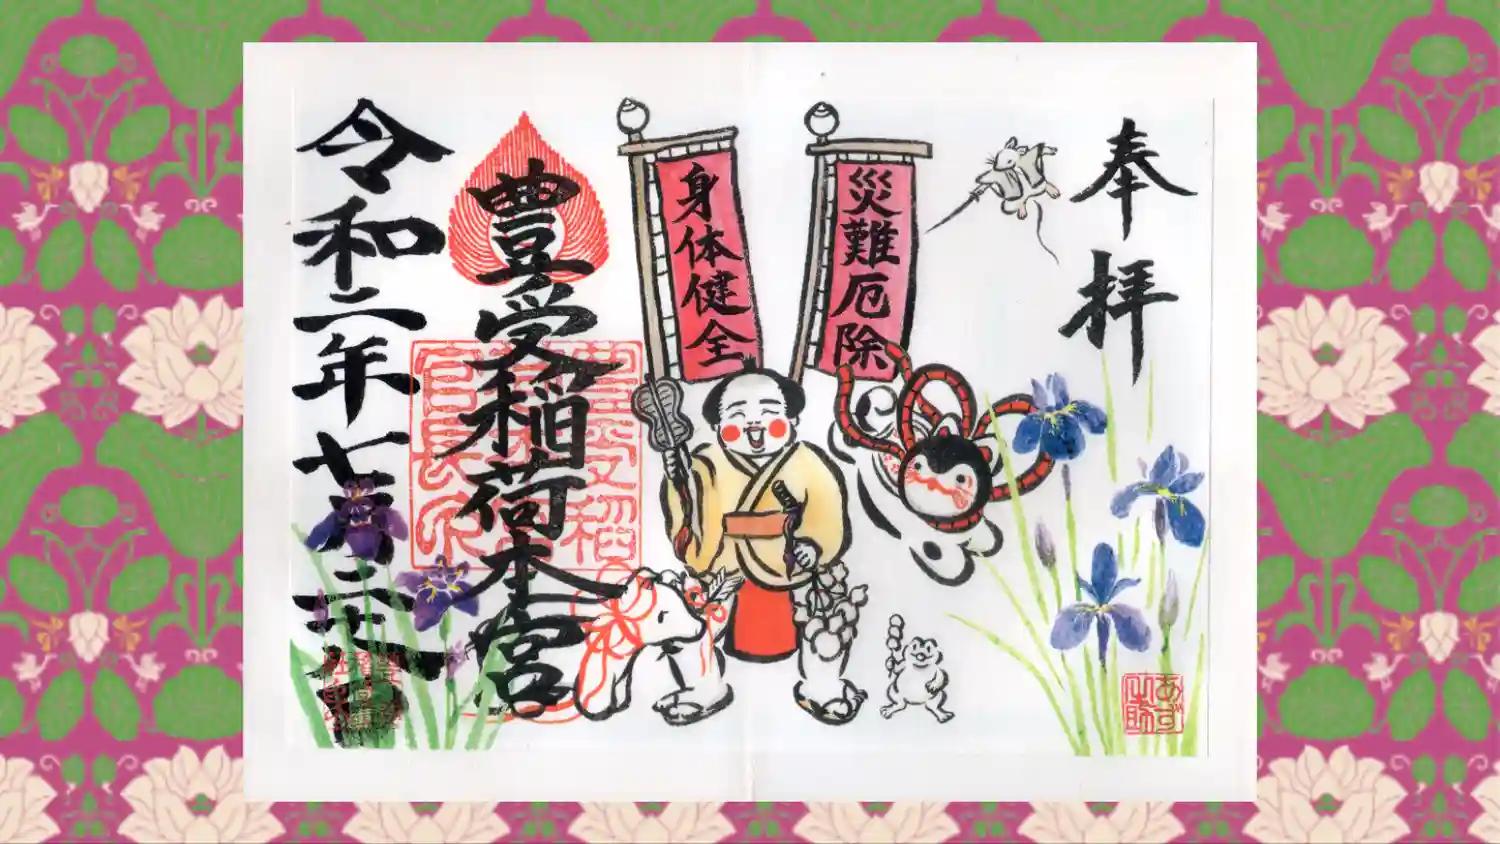 奉拝
災難厄除
身体健全
豊受稲荷本宮
令和二年七月二十七日
あず